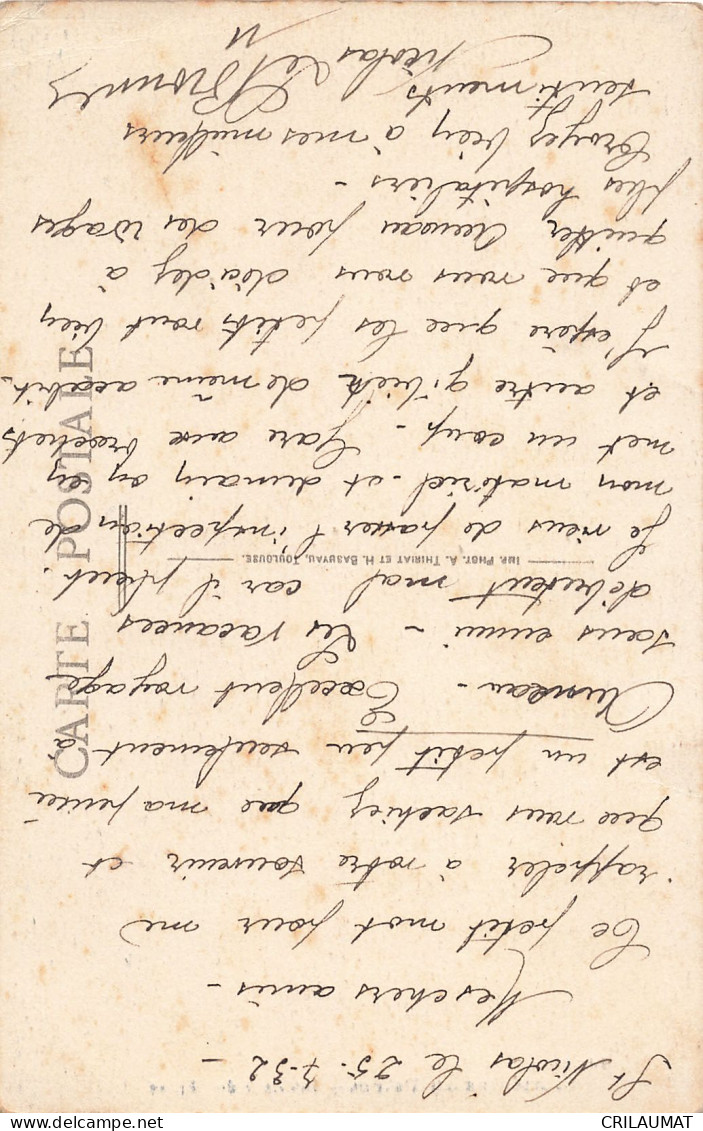 St Nicolas le 25-7-32 -
Mes chers amis -
Ce petit mot pour me
rappeler à votre souvenir et
que vous sachiez que ma pensée
est un petit peu seulement à
Auneau - Excellent voyage
sans ennui - Les vacances
débutent mal car il pleut.
Je viens de passer l'inspection de
mon matériel et demain on en
met un coup - Gare aux brochets
et autre gibier de même acabit.
J'espère que les petits vont bien
et que vous vous décidez à
quitter Auneau pour des
plus hospitaliers -
Croyez bien à mes meilleurs
sentiments
Nicolas le
CARTE POSTALE
IMP. PHOT. A. THIRIAT ET H. BASUYAU, TOULOUSE.
CRILAUMAT